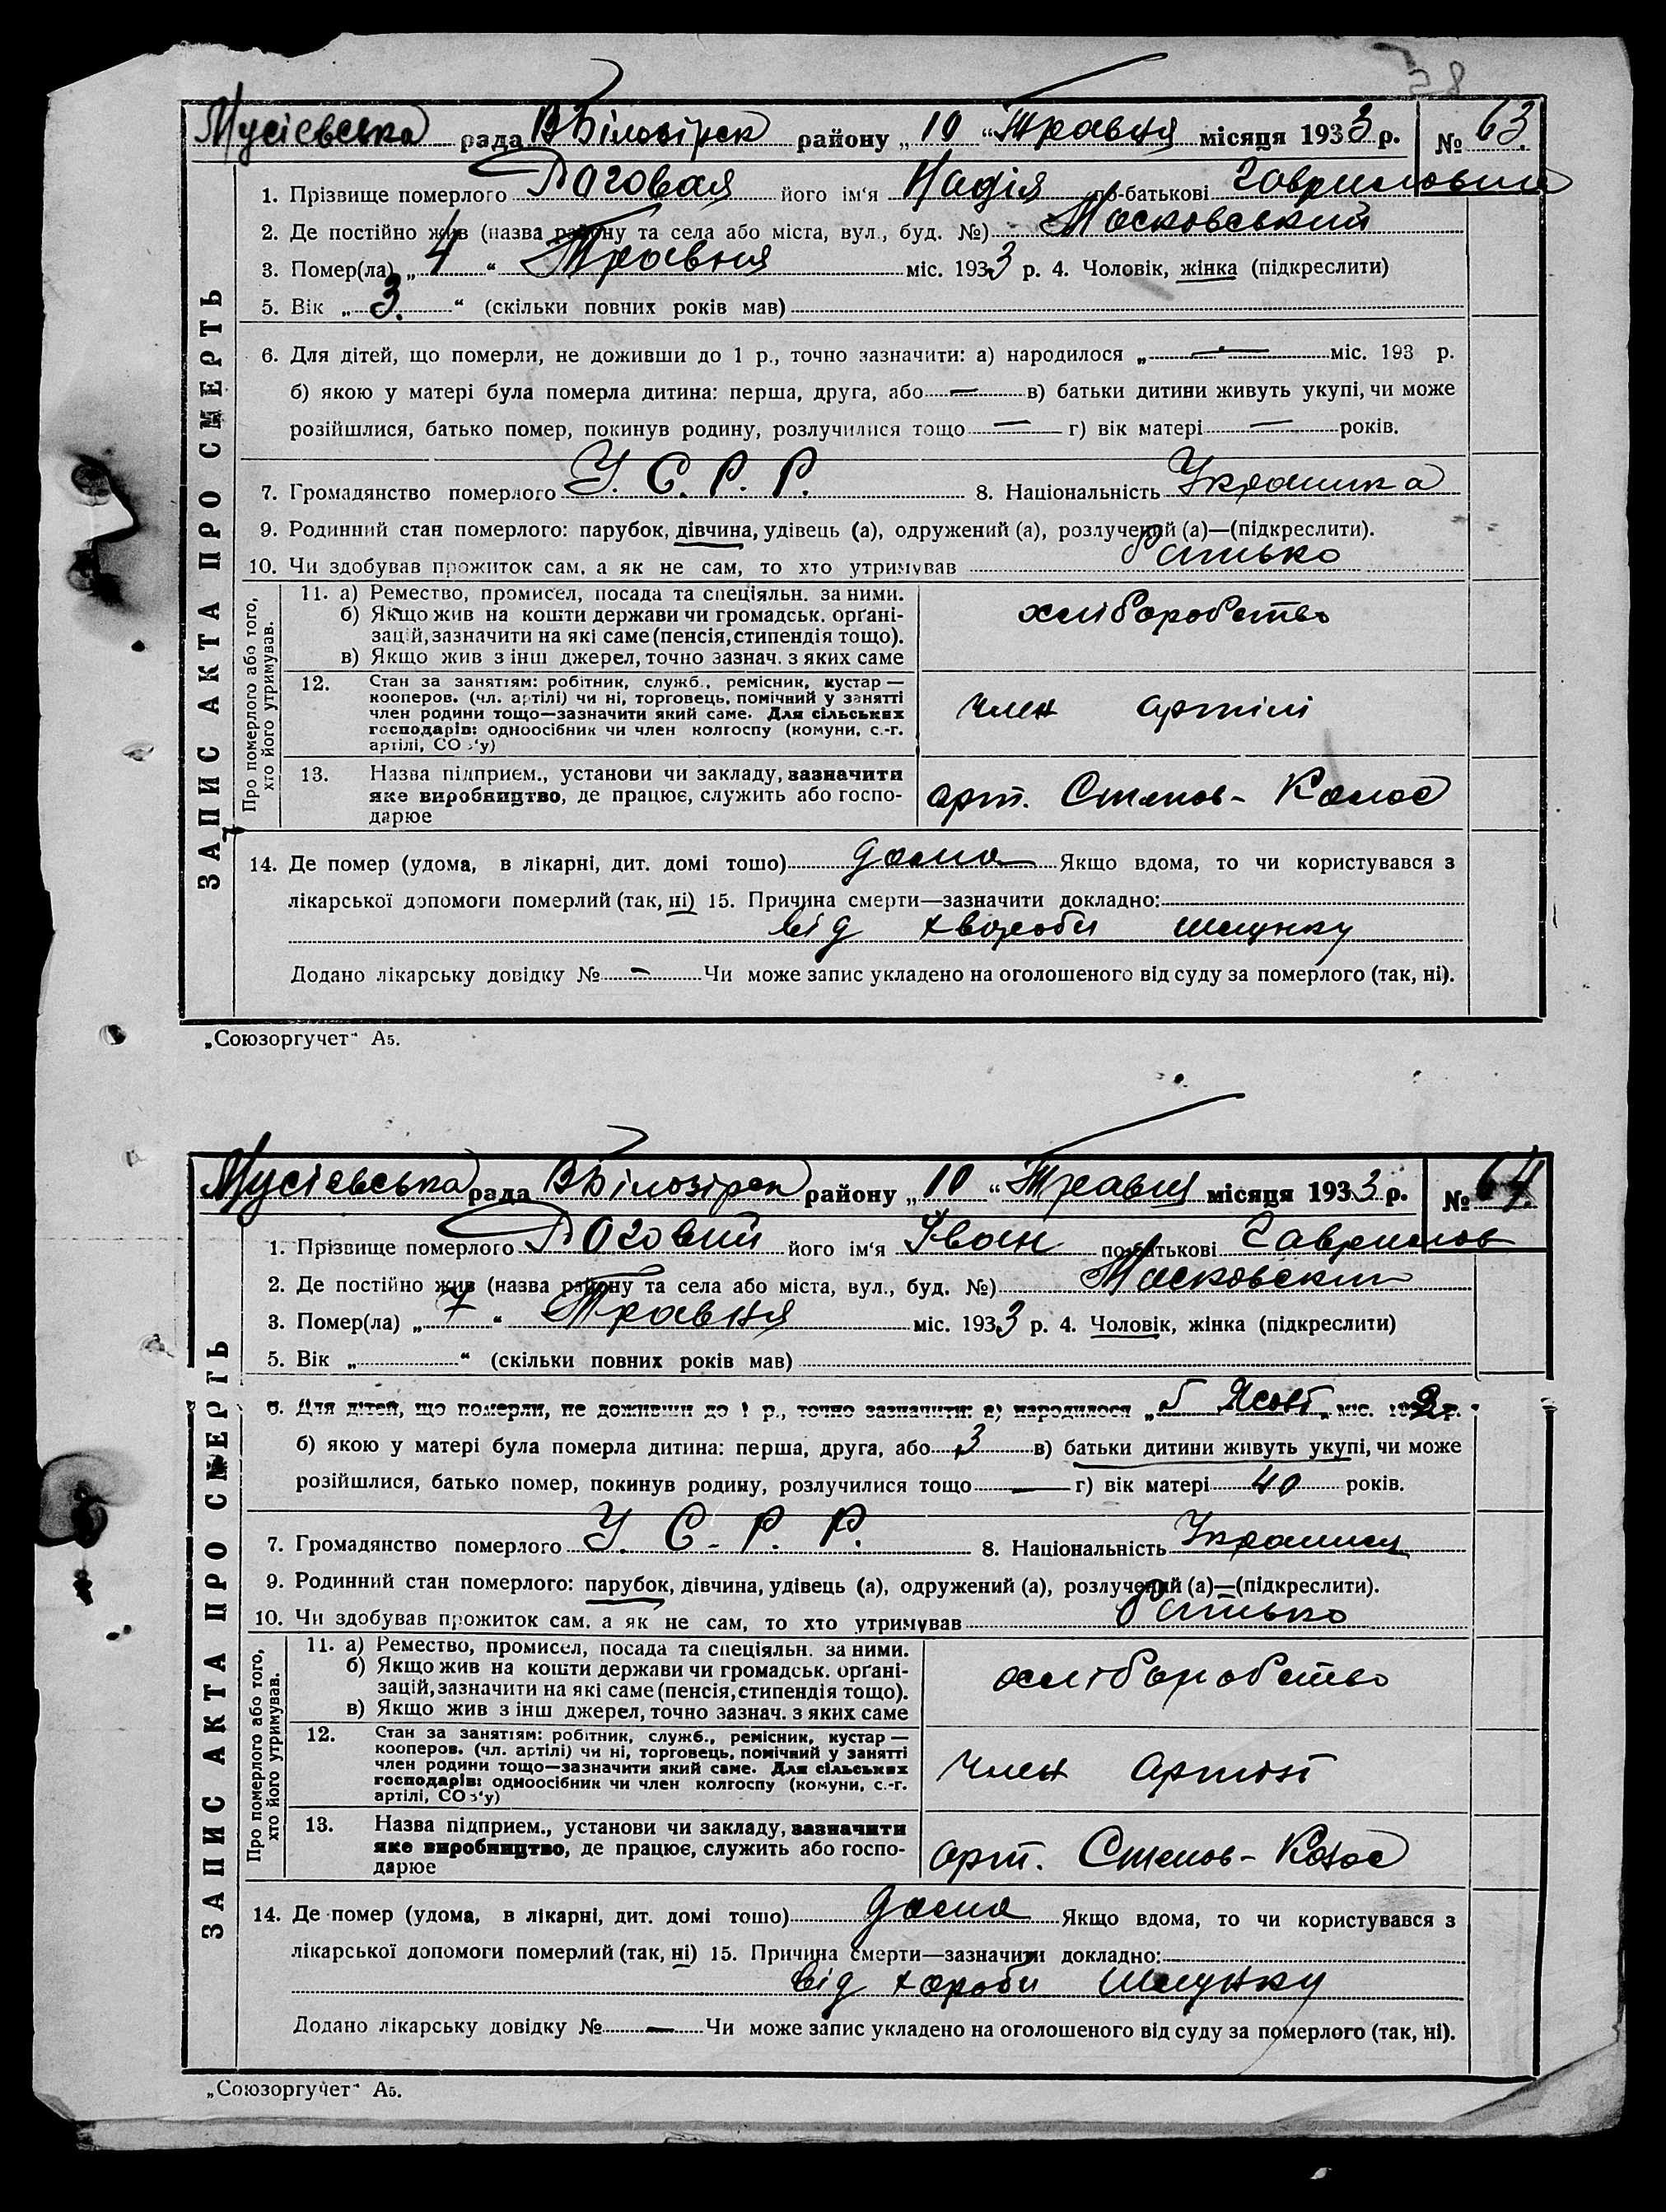 58
Мусієвська рада ВБілозірск району „ 10 “ Травня місяця 1933 р. № 63.
1. Прізвище померлого Роговая його ім‘я Надія по-батькові Гавриловна
2. Де постійно жив (назва району та села або міста, вул., буд. №) Московський
3. Помер(ла) „ 4 “ Травня міс. 1933 р. 4. Чоловік, жінка (підкреслити)
5. Вік „ 3. “ (скільки повних років мав)
6. Для дітей, що померли, не доживши до 1 р., точно зазначити: а) народилося „ — міс. 193 р.
б) якою у матері була померла дитина: перша, друга, або — в) батьки дитини живуть укупі, чи може
розійшлися, батько помер, покинув родину, розлучилися тощо — г) вік матері — років.
7. Громадянство померлого У. С. Р. Р. 8. Національність Украинка
9. Родинний стан померлого: парубок, дівчина, удівець (а), одружений (а), розлучений (а)—(підкреслити).
10. Чи здобував прожиток сам, а як не сам, то хто утримував батько
ЗАПИС АКТА ПРО СМЕРТЬ
Про померлого або того, хто його утримував.
11. а) Ремество, промисел, посада та спеціяльн. за ними.
б) Якщо жив на кошти держави чи громадськ. орґані-
зацій, зазначити на які саме (пенсія, стипендія тощо).
в) Якщо жив з інш джерел, точно зазнач. з яких саме
хліборобство
12. Стан за заняттям: робітник, служб., ремісник, кустар —
кооперов. (чл. артілі) чи ні, торговець, помічний у занятті
член родини тощо—зазначити який саме. Для сільських
господарів: одноосібник чи член колгоспу (комуни, с.-г.
артілі, СОЗ‘у)
член артілі
13. Назва підприєм., установи чи закладу, зазначити
яке виробництво, де працює, служить або госпо-
дарює
арт. Степов- Колос
14. Де помер (удома, в лікарні, дит. домі тощо) дома Якщо вдома, то чи користувався з
лікарської допомоги померлий (так, ні) 15. Причина смерти—зазначити докладно:
від хвороби шлунку
Додано лікарську довідку № — Чи може запис укладено на оголошеного від суду за померлого (так, ні).
„Союзоргучет“ А5.
Мусієвська рада ВБілозірск району „ 10 “ Травня місяця 1933 р. № 64.
1. Прізвище померлого Роговий його ім‘я Іван по-батькові Гаврилов
2. Де постійно жив (назва району та села або міста, вул., буд. №) Московский
3. Помер(ла) „ 7 “ Травня міс. 1933 р. 4. Чоловік, жінка (підкреслити)
5. Вік „ “ (скільки повних років мав)
6. Для дітей, що померли, не доживши до 1 р., точно зазначити: а) народилося „ 5 Жовт. міс. 1932 р.
б) якою у матері була померла дитина: перша, друга, або 3 в) батьки дитини живуть укупі, чи може
розійшлися, батько помер, покинув родину, розлучилися тощо — г) вік матері 40 років.
7. Громадянство померлого У. С. Р. Р. 8. Національність
9. Родинний стан померлого: парубок, дівчина, удівець (а), одружений (а), розлучений (а)—(підкреслити).
10. Чи здобував прожиток сам, а як не сам, то хто утримував батько
ЗАПИС АКТА ПРО СМЕРТЬ
Про померлого або того, хто його утримував.
11. а) Ремество, промисел, посада та спеціяльн. за ними.
б) Якщо жив на кошти держави чи громадськ. орґані-
зацій, зазначити на які саме (пенсія, стипендія тощо).
в) Якщо жив з інш джерел, точно зазнач. з яких саме
хліборобство
12. Стан за заняттям: робітник, служб., ремісник, кустар —
кооперов. (чл. артілі) чи ні, торговець, помічний у занятті
член родини тощо—зазначити який саме. Для сільських
господарів: одноосібник чи член колгоспу (комуни, с.-г.
артілі, СОЗ‘у)
член артілі
13. Назва підприєм., установи чи закладу, зазначити
яке виробництво, де працює, служить або госпо-
дарює
арт. Степов- Колос
14. Де помер (удома, в лікарні, дит. домі тощо) дома Якщо вдома, то чи користувався з
лікарської допомоги померлий (так, ні) 15. Причина смерти—зазначити докладно:
від хороби шлунку
Додано лікарську довідку № — Чи може запис укладено на оголошеного від суду за померлого (так, ні).
„Союзоргучет“ А5.